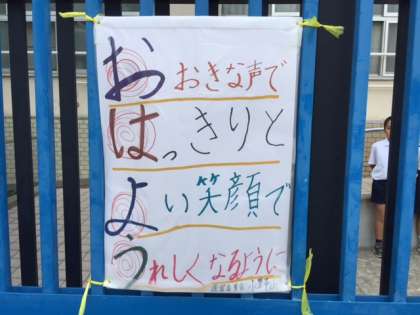 おおきな声で
はっきりと
よい笑顔で
うれしくなるように